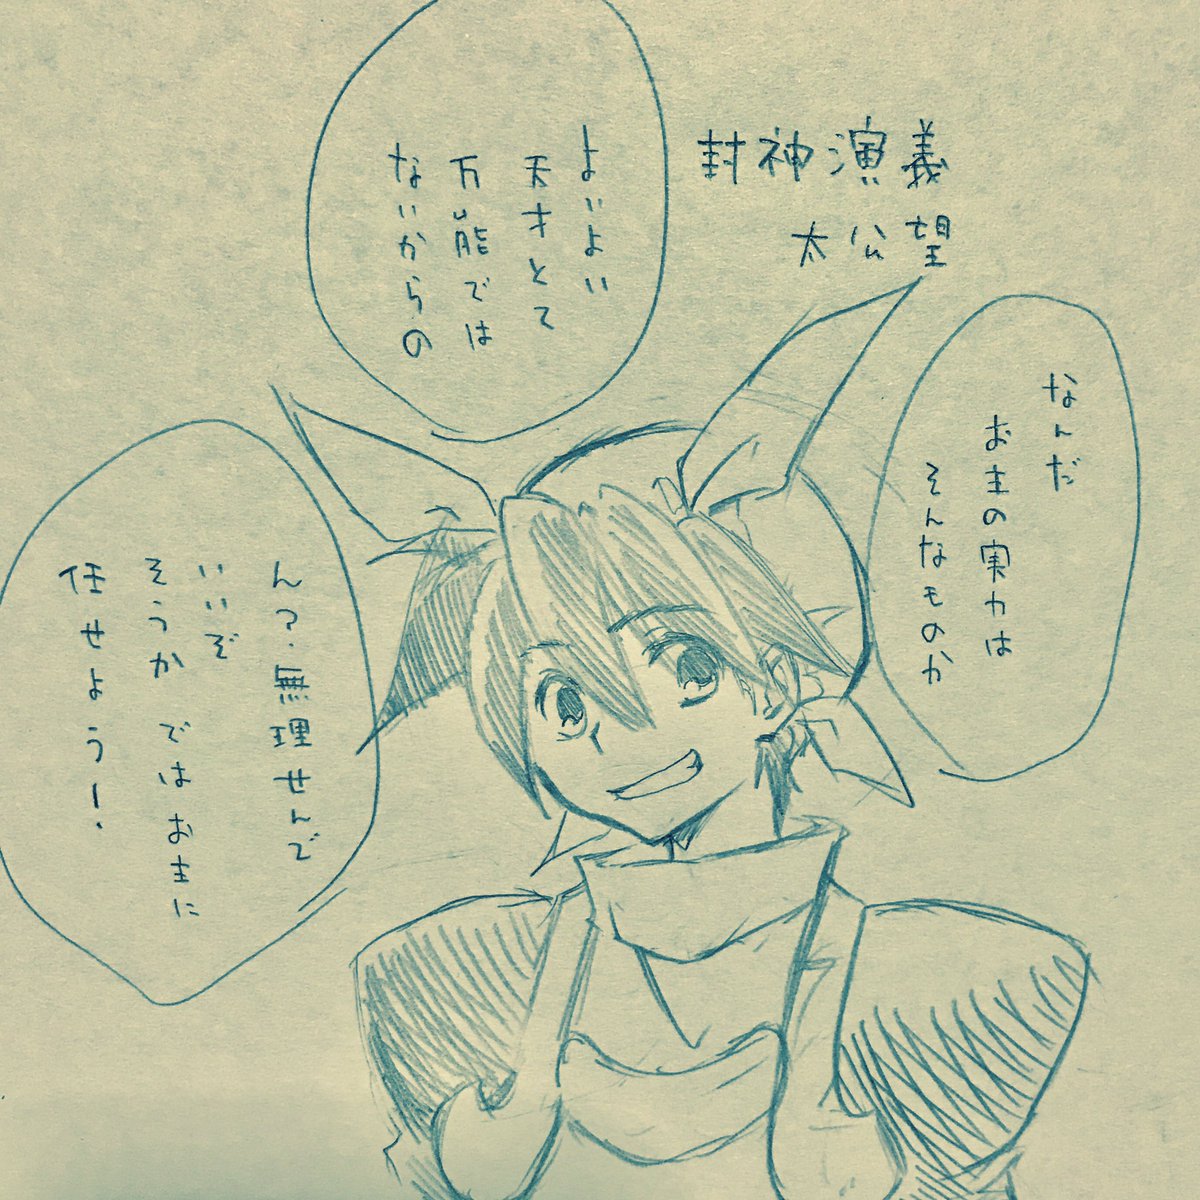 封神演義
太公望
なんだ
お主の実力は
そんなものか
よいよい
天才とて
万能では
ないからの
ん?無理せんで
いいぞ
そうか ではお主に
任せよう!